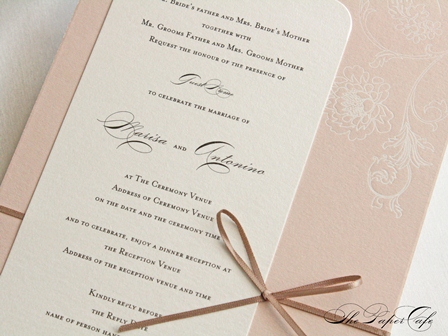 Mr. Bride's father and Mrs. Bride's Mother
together with
Mr. Grooms Father and Mrs. Grooms Mother
Request the honour of the presence of
Guest Name
to celebrate the marriage of
Marisa and Antonino
at The Ceremony Venue
Address of Ceremony Venue
on the date and the ceremony time
and to celebrate, enjoy a dinner reception at
Reception Venue
Address of Reception Venue
Kindly reply before
the Reply Date
name of person
The Paper Cafe